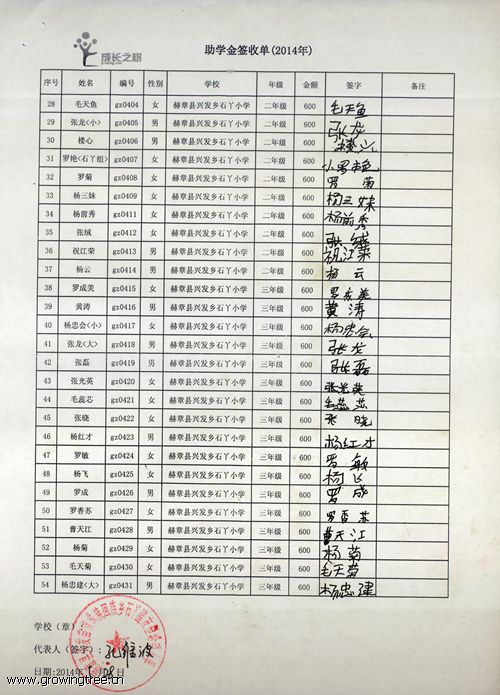 成长之树
助学金签收单(2014年)
序号 姓名 编号 性别 学校 年级 金额 签字 备注
28 毛天鱼 gz0404 女 赫章县兴发乡石丫小学 二年级 600 毛天鱼
29 张龙<小> gz0405 男 赫章县兴发乡石丫小学 二年级 600 张龙
30 楼心 gz0406 男 赫章县兴发乡石丫小学 二年级 600
31 罗艳<石丫组> gz0407 女 赫章县兴发乡石丫小学 二年级 600
32 罗菊 gz0408 女 赫章县兴发乡石丫小学 二年级 600 罗菊
33 杨三妹 gz0409 女 赫章县兴发乡石丫小学 二年级 600 杨三妹
34 杨前秀 gz0411 女 赫章县兴发乡石丫小学 二年级 600 杨前秀
35 张绒 gz0412 女 赫章县兴发乡石丫小学 二年级 600 张绒
36 祝江荣 gz0413 男 赫章县兴发乡石丫小学 二年级 600 祝江荣
37 杨云 gz0414 男 赫章县兴发乡石丫小学 二年级 600 杨云
38 罗成美 gz0415 女 赫章县兴发乡石丫小学 三年级 600 罗成美
39 黄涛 gz0416 男 赫章县兴发乡石丫小学 三年级 600 黄涛
40 杨忠会<小> gz0417 女 赫章县兴发乡石丫小学 三年级 600 杨忠会
41 张龙<大> gz0418 男 赫章县兴发乡石丫小学 三年级 600 张龙
42 张磊 gz0419 男 赫章县兴发乡石丫小学 三年级 600 张磊
43 张光英 gz0420 女 赫章县兴发乡石丫小学 三年级 600 张光英
44 毛蕊芯 gz0421 女 赫章县兴发乡石丫小学 三年级 600
45 张晓 gz0422 女 赫章县兴发乡石丫小学 三年级 600 张晓
46 杨红才 gz0423 男 赫章县兴发乡石丫小学 三年级 600 杨红才
47 罗敏 gz0424 女 赫章县兴发乡石丫小学 三年级 600 罗敏
48 杨飞 gz0425 女 赫章县兴发乡石丫小学 三年级 600 杨飞
49 罗成 gz0426 男 赫章县兴发乡石丫小学 三年级 600 罗成
50 罗香苏 gz0427 女 赫章县兴发乡石丫小学 三年级 600 罗香苏
51 曹天江 gz0428 男 赫章县兴发乡石丫小学 三年级 600 曹天江
52 杨菊 gz0429 女 赫章县兴发乡石丫小学 三年级 600 杨菊
53 毛天菊 gz0430 女 赫章县兴发乡石丫小学 三年级 600 毛天菊
54 杨忠建<大> gz0431 男 赫章县兴发乡石丫小学 三年级 600 杨忠建
学校(章):
代表人(签字): 孔维波
日期:2014年 月 日
www.growingtree.cn